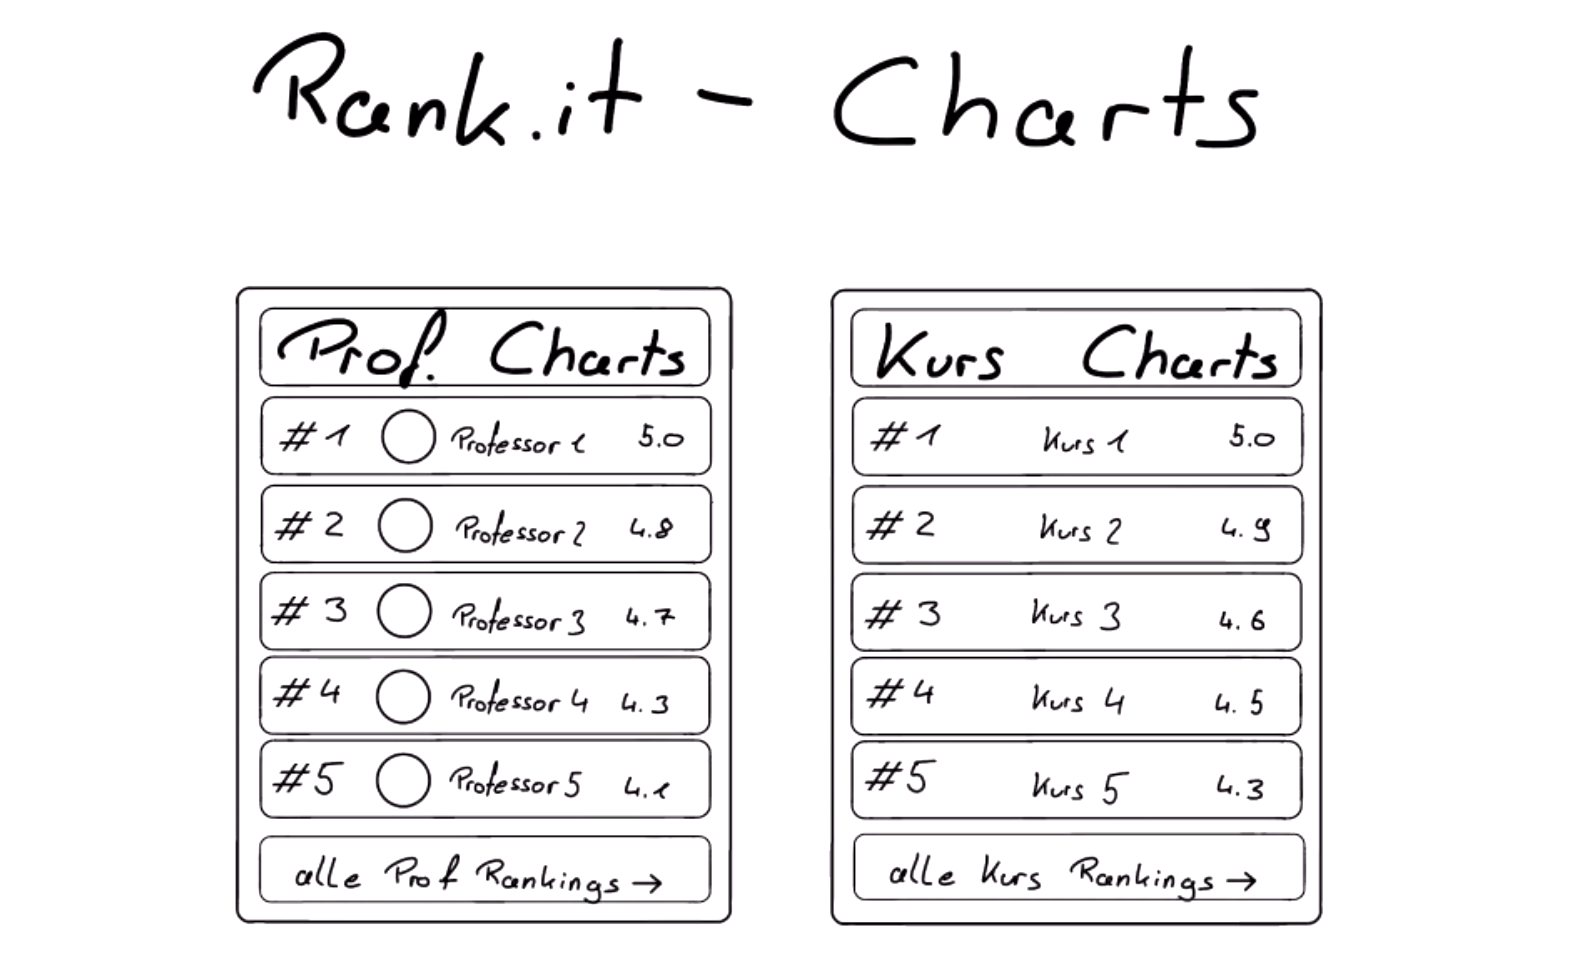 Rank.it - Charts
Prof. Charts
#1 Professor 1 5.0
#2 Professor 2 4.8
#3 Professor 3 4.7
#4 Professor 4 4.3
#5 Professor 5 4.1
alle Prof Rankings →
Kurs Charts
#1 Kurs 1 5.0
#2 Kurs 2 4.9
#3 Kurs 3 4.6
#4 Kurs 4 4.5
#5 Kurs 5 4.3
alle Kurs Rankings →